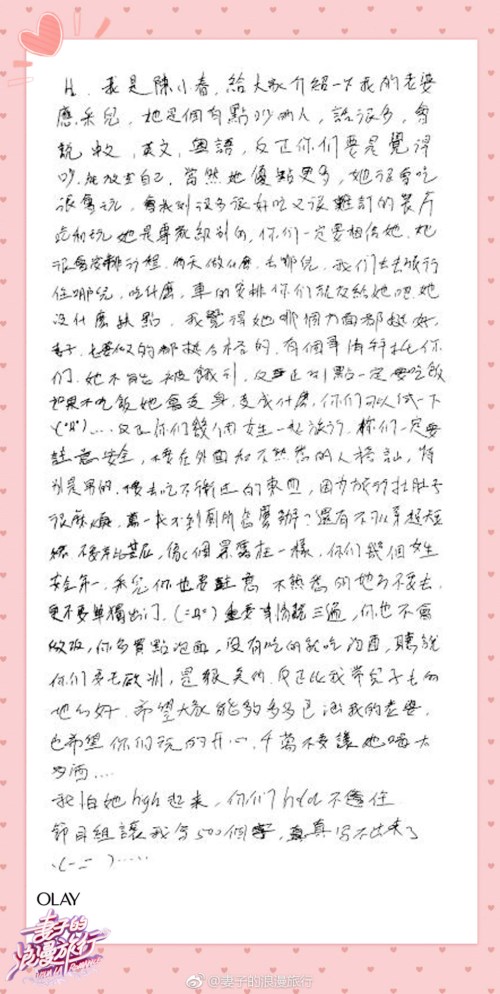 Hi、我是陳小春，給大家介紹一下我的老婆
應采兒，她是個有點吵的人，話很多，會
說軟，英文，粵語，反正你們要是覺得
吵，就放空自己，當然她優點更多，她很會吃
很會玩，會找到很多很好吃又很難訂的餐厅
吃和玩她是專家級別的，你們一定要相信她，她
很會安排行程，每天做什麼，去哪兒，我們去去旅行
住哪兒，吃什麼，車的安排你們就交給她吧，她
沒什麼缺點，我覺得她哪個方面都挺好，
妻子，七要做的都挺合格的，有個事情拜托你
们，她不能被餓到，反正到點一定要吃飯
如果不吃飯她會变身，变成什麼，你們可以試一下
....反正你们幾個女生一起旅行，你们一定要
註意安全，不要在外面和不熟悉的人搭訕，特
別是男的，不要去吃不衛生的東西，因为旅行拉肚子
很麻煩，萬一找不到廁所怎麼辦？還有不可以穿超短
裙，不要穿比基尼，像個累罵在一樣，你们幾個女生
安全第一，采兒你也要註意，不熟悉的地方不要去，
更不要單獨出门，重要事情說三遍，你也不會
做飯，你多買點泡面，沒有吃的就吃泡面，聽說
你们要去歐洲，是很美的，反正比我帶兒子去的
地方好，希望大家能夠多多包涵我的老婆，
也希望你们玩的开心，千萬不要讓她喝太
多酒....
我怕她high起来，你们hold不住
節目組讓我写500個字，真真写不出來了
.....
OLAY
妻子的
浪漫旅行
@妻子的浪漫旅行